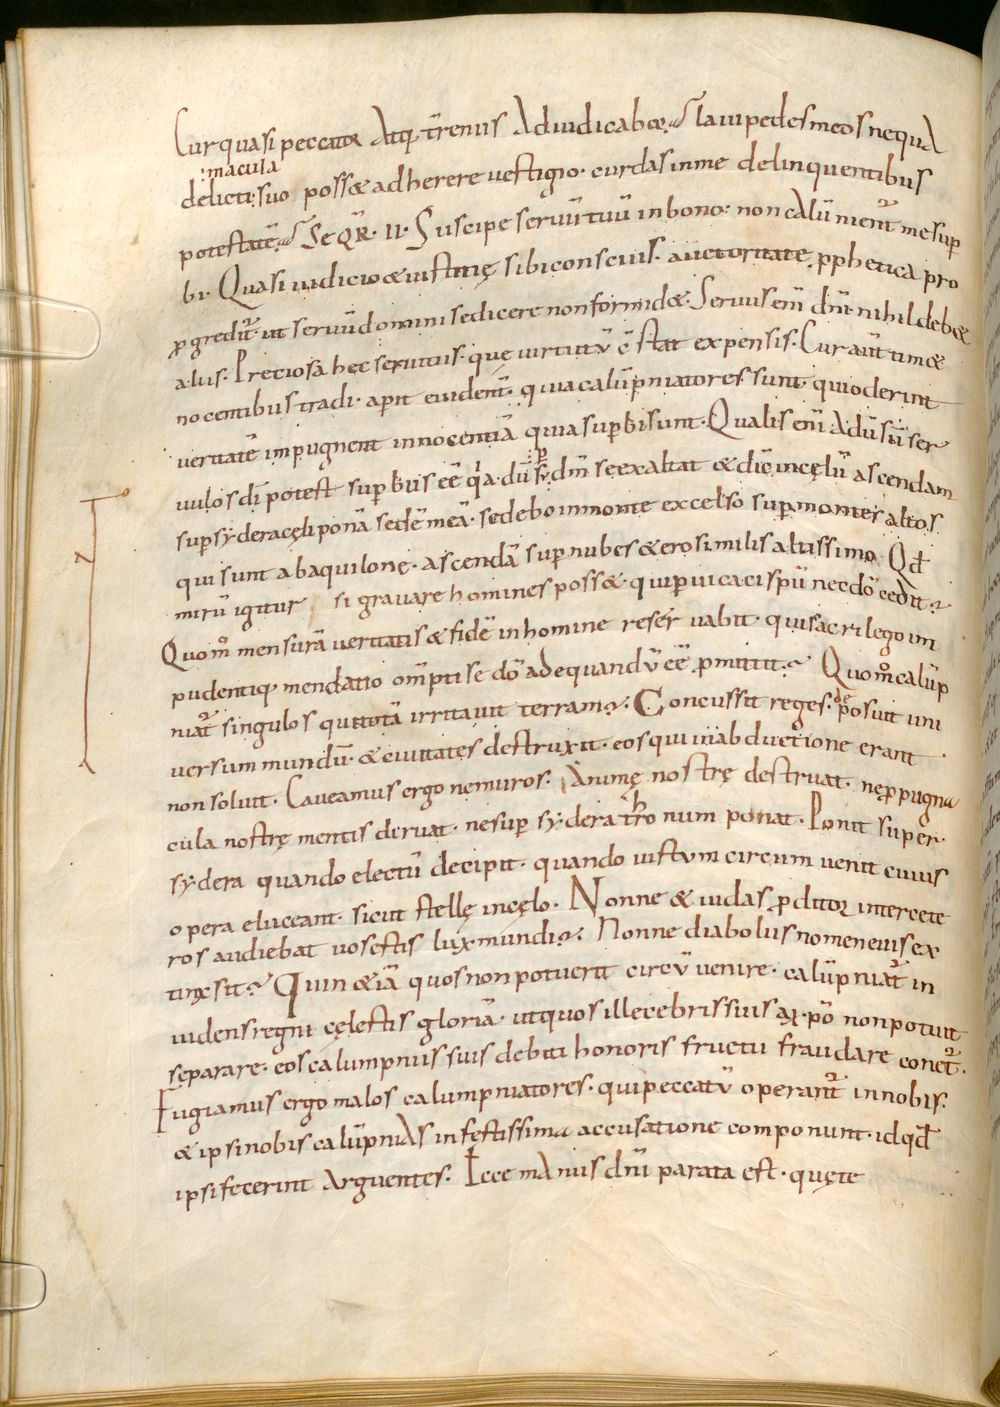 Cur quasi peccator Atq; trenus Adiudicabor. Laui pedes meos ne quA
macula
delicti suo poss& adherere uestigio · cur das in me delinquentibus
potestatē. SeQR · II · Suscipe seruū tuū in bono · non cAlūnient̃ me sup̱
bi · Quasi iudicio & iustitię sibi conscius · auctoritate p̱phetica pro
p̱gredit̃ · ut seruū domini se dicere non formid& · Seruus eni dn̄i nihil deb&
alus · Preciosa hęc seruitus · quę uirtutū ē stat expensis · Cur aut̃ tim&
nocentibus tradi · aperit euident̃ · quia calūpniatores sunt · qui oderint
ueritatē impugnent innocentiā quia superbi sunt · Qualis eni Adū sū ser
uulos dī potest superbus eē qͥa · dū sr̄ dn̄m se exaltat & dic̄ in cęlū ascendam
sup̱ sydera cęli ponā sedē meā · sedebo in monte excelso sup̱ montes altos
qui sunt ab aquilone · ascendā sup̱ nubes & ero similis altissimo Qđ
mirū igitur si grauare homines poss& · qui p̱uicaci sp̄u nec dō cedit?
Quom̊ mensurā ueritatis & fidē in homine reseruabit · qui sacrilego im
pudentiq; mendatio om̄pti se dō adequandū eē p̱mittit? Quom̊ calūp
niat̃ singulos qui totā irritauit terram? Concussit reges · deposuit uni
uersum mundū · & ciuitates destruxit · eos qui in abductione erant
non soluit · Caueamus ergo ne muros · Animę nostrę destruat · ne p̱pugna
cula nostrę mentis deruat · ne sup̱ sydera thronum ponat · Ponit super
sydera quando electū decipit · quando iustum circum uenit cuius
opera eluceant · sicut stellę in cęlo · Nonne & iudas p̱ditor inter cete
ros audiebat uos estis lux mundi? Nonne diabolus nomen eius ex
tinxsit? Quin &iā quos non potuerit circū uenire · calūpniat̃ in
uidens regni cęlestis gloriā · ut quos illecebris suis a xp̄o non potuit
separare · eos calumpniis suis debiti honoris fructu fraudare conet̃ ·
Fugiamus ergo malos calumpniatores · qui peccatū operant̃ in nobis ·
& ipsi nobis calūpniAs infestissima accusatione componunt · id qđ
ipsi fecerint Arguentes · Ecce mAnus dn̄i parata est · quę te